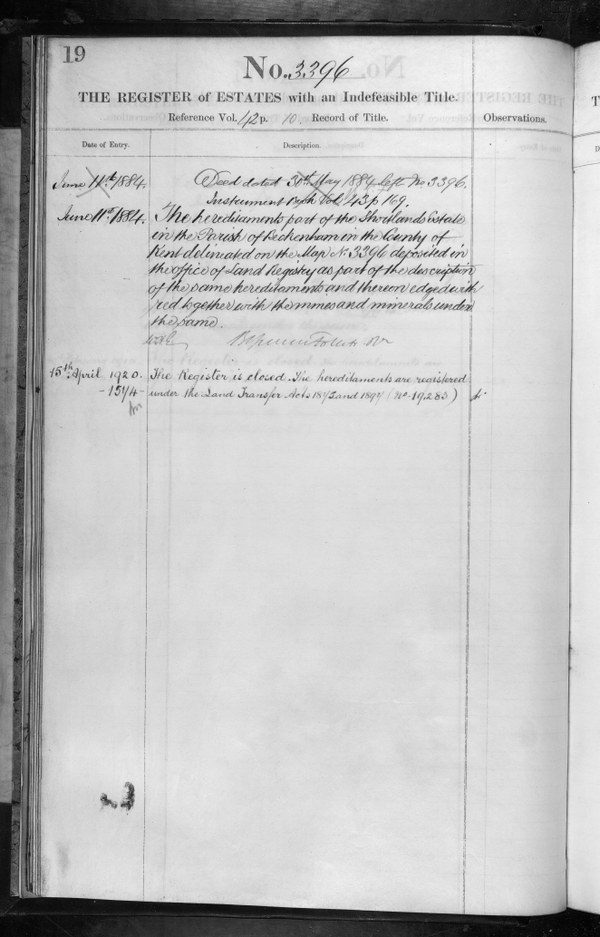 19
No. 3396
THE REGISTER of ESTATES with an Indefeasible Title.
Reference Vol. 42 p. 10. Record of Title.
Observations.
Date of Entry.
Description.
June 11th 1884.
Deed dated 30th May 1884 left No 3396.
Instrument Vol. 43 p 169.
June 11th 1884.
The hereditaments part of the Shortlands Estate
in the Parish of Beckenham in the County of
Kent delineated on the Map No. 3396 deposited in
the office of Land Registry as part of the description
of the same hereditaments and thereon edged with
red together with the mines and minerals under
the same.
15th April 1920.
The Register is closed. The hereditaments are registered
- 1574 -
under the Land Transfer Acts 1875 and 1897 (No 19283)